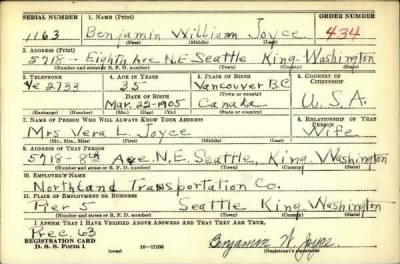 SERIAL NUMBER 1. NAME (Print) ORDER NUMBER
1163 Benjamin William Joyce 434
(First) (Middle) (Last)
2. ADDRESS (Print)
5718- Eighth Ave N.E. Seattle King Washington
(Number and street or R. F. D. number) (Town) (County) (State)
3. TELEPHONE 4. AGE IN YEARS 5. PLACE OF BIRTH 6. COUNTRY OF CITIZENSHIP
Ve 2733 35 Vancouver B.C
DATE OF BIRTH (Town or county)
Mar. 22-1905 Canada U.S.A.
(Exchange) (Number) (Mo.) (Day) (Yr.) (State or country)
7. NAME OF PERSON WHO WILL ALWAYS KNOW YOUR ADDRESS 8. RELATIONSHIP OF THAT PERSON
Mrs Vera L. Joyce Wife
(Mr., Mrs., Miss) (First) (Middle) (Last)
9. ADDRESS OF THAT PERSON
5718- 8th Ave. N.E. Seattle, King, Washington
(Number and street or R. F. D. number) (Town) (County) (State)
10. EMPLOYER'S NAME
Northland Transportation Co.
11. PLACE OF EMPLOYMENT OR BUSINESS
Pier 5 Seattle King Washington
(Number and street or R. F. D. number) (Town) (County) (State)
I AFFIRM THAT I HAVE VERIFIED ABOVE ANSWERS AND THAT THEY ARE TRUE.
Prec. 63
REGISTRATION CARD
D. S. S. Form 1 Benjamin W. Joyce
(Registrant's signature)